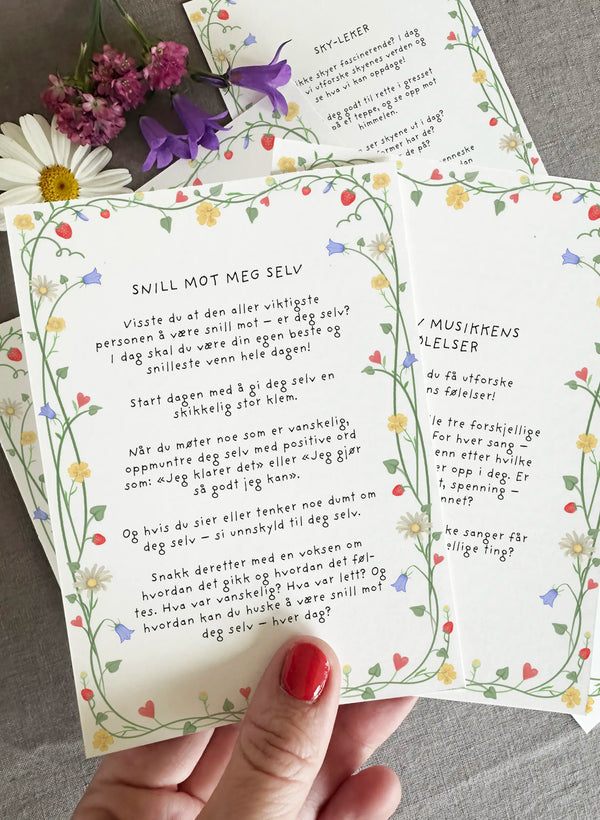 SKY-LEKER
ikke skyer fascinerende? I dag
vi utforske skyenes verden og
se hva vi kan oppdage!
deg godt til rette i gresset
på et teppe, og se opp mot
himmelen.
ser skyene ut i dag?
former har de?
de på?
enneske
SNILL MOT MEG SELV
Visste du at den aller viktigste
personen å være snill mot – er deg selv?
I dag skal du være din egen beste og
snilleste venn hele dagen!
Start dagen med å gi deg selv en
skikkelig stor klem.
Når du møter noe som er vanskelig,
oppmuntre deg selv med positive ord
som: «Jeg klarer det» eller «Jeg gjør
så godt jeg kan».
Og hvis du sier eller tenker noe dumt om
deg selv – si unnskyld til deg selv.
Snakk deretter med en voksen om
hvordan det gikk og hvordan det føl-
tes. Hva var vanskelig? Hva var lett? Og
hvordan kan du huske å være snill mot
deg selv – hver dag?
MUSIKKENS
ØLELSER
du få utforske
ns følelser!
le tre forskjellige
For hver sang –
enn etter hvilke
er opp i deg. Er
t, spenning –
nnet?
ke sanger får
ellige ting?